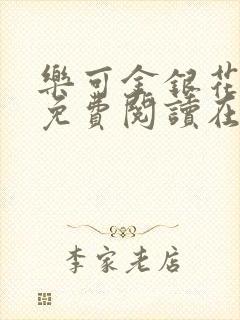 樂可金銀花
免費閱讀在
李家老店